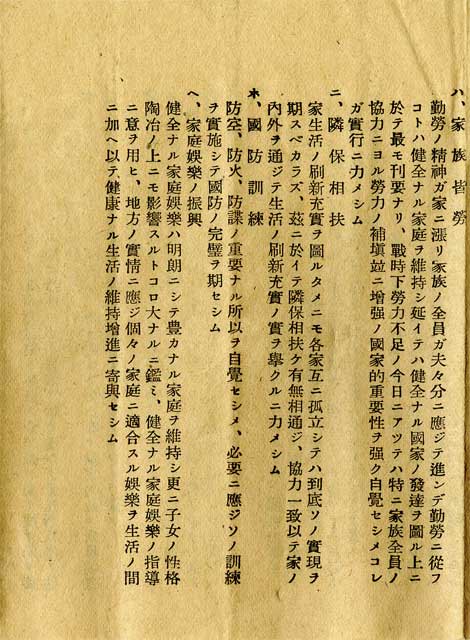 ハ、家族皆勞
勤勞ノ精神ガ家ニ漲リ家族ノ全員ガ夫々分ニ應ジテ進ンデ勤勞ニ從フ
コトハ健全ナル家庭ヲ維持シ延イテハ健全ナル國家ノ發達ヲ圖ル上ニ
於テ最モ刊要ナリ、戰時下勞力不足ノ今日ニアツテハ特ニ家族全員ノ
協力ニヨル勞力ノ補塡竝ニ增强ノ國家的重要性ヲ强ク自覺セシメコレ
ガ實行ニ力メシム
ニ、隣保相扶
家生活ノ刷新充實ヲ圖ルタメニモ各家互ニ孤立シテハ到底ソノ實現ヲ
期スベカラズ、茲ニ於イテ隣保相扶ケ有無相通ジ、協力一致以テ家ノ
內外ヲ通ジテ生活ノ刷新充實ノ實ヲ擧クルニ力メシム
ホ、國防訓練
防空、防火、防諜ノ重要ナル所以ヲ自覺セシメ、必要ニ應ジソノ訓練
ヲ實施シテ國防ノ完璧ヲ期セシム
ヘ、家庭娛樂ノ振興
健全ナル家庭娛樂ハ明朗ニシテ豊カナル家庭ヲ維持シ更ニ子女ノ性格
陶冶ノ上ニモ影響スルトコロ大ナルニ鑑ミ、健全ナル家庭娛樂ノ指導
ニ意ヲ用ヒ、地方ノ實情ニ應ジ個々ノ家庭ニ適合スル娛樂ヲ生活ノ間
ニ加ヘ以テ健康ナル生活ノ維持增進ニ寄與セシム